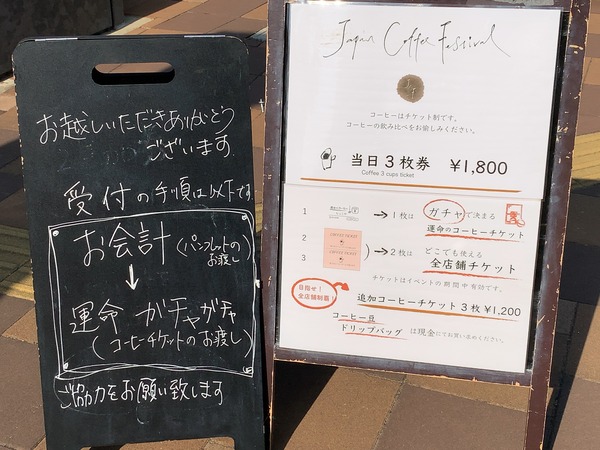 お越しいただきありがとう
ございます
受付の手順は以下です
お会計(パンフレットの
お渡し)
↓
運命 ガチャガチャ
(コーヒーチケットのお渡し)
ご協力をお願い致します
Japan Coffee Festival
コーヒーはチケット制です。
コーヒーの飲み比べをお愉しみください。
当日3枚券 ¥1,800
Coffee 3 cups ticket
1 →1枚は ガチャ で決まる
運命のコーヒーチケット
2
3
→2枚は どこでも使える
全店舗チケット
チケットはイベントの期間中有効です。
目指せ!
全店舗制覇!
追加コーヒーチケット3枚¥1,200
コーヒー豆
ドリップバッグ は現金にてお買い求めください。